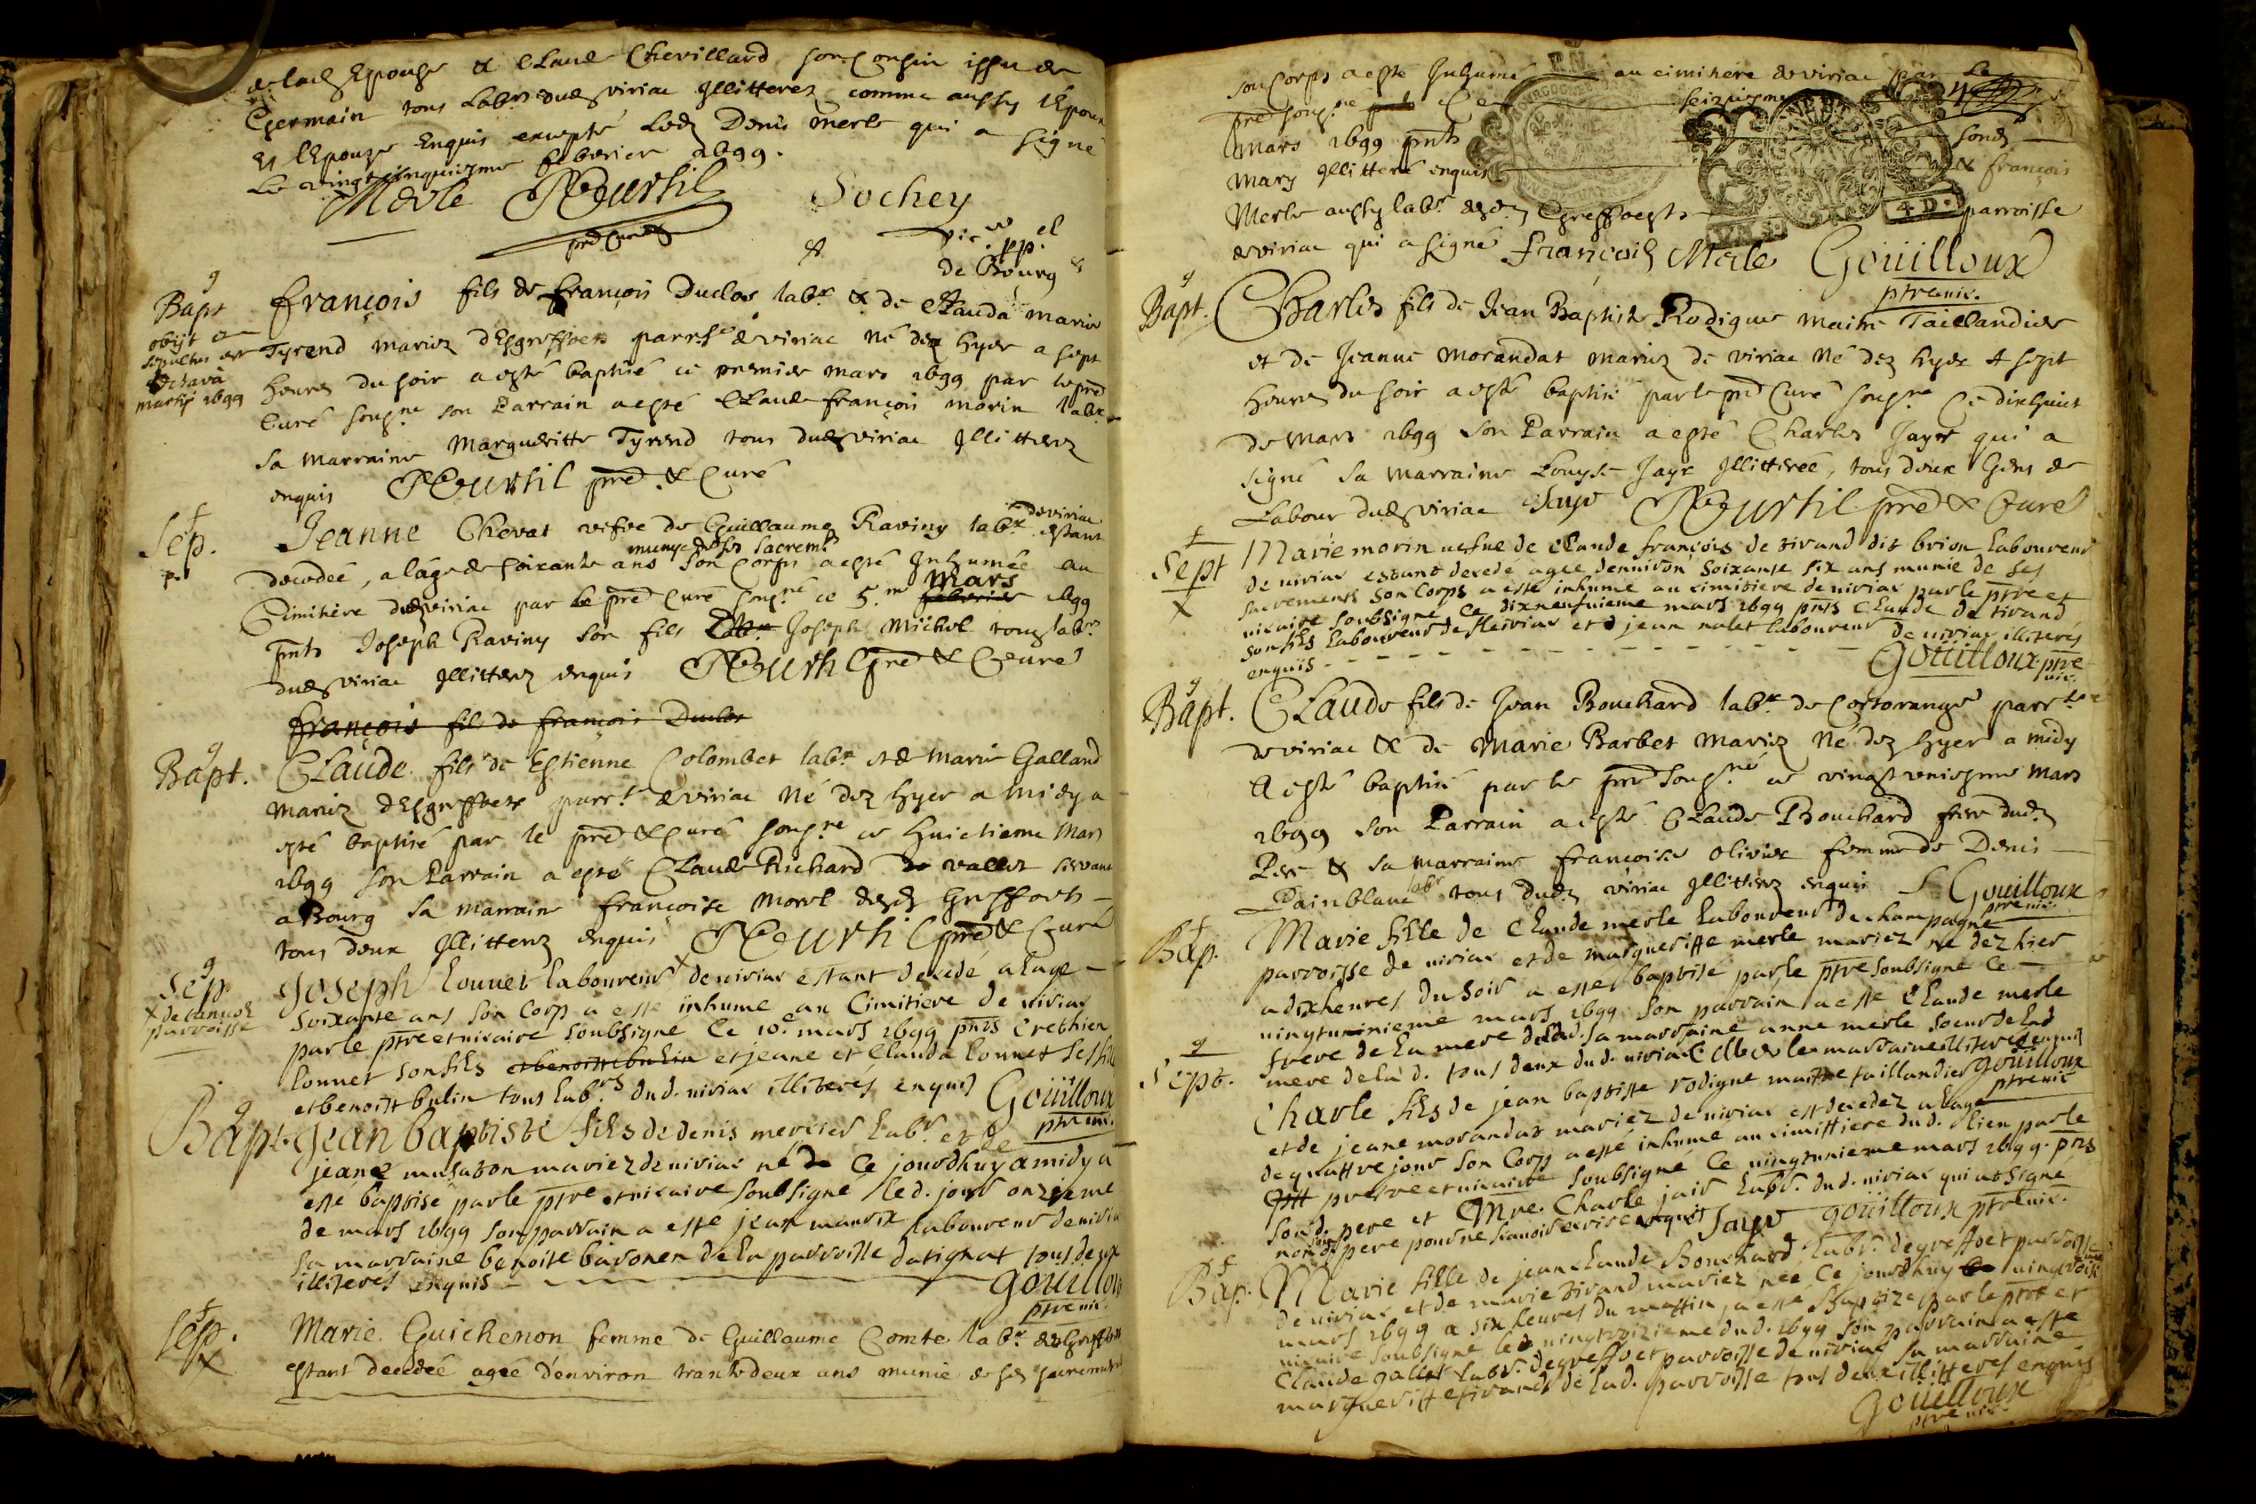 delad Epouse & Claude Chevillard son Cousin issu de
Germain tous Labrs dud viriac Illitterez comme aussy l'Epoux
et l'Epouze Enquis excepté Led Denis Merle qui a signé
Le vingt cinquiesme febvrier 1699.
Merle NCurtil Sochey
pre Curé & vic.
de Bourg
g
Bapt
obijt et
sepultus est
octava
martij 1699
françois fils de françois Duclos labr & de Clauda marie
Tyrend mariez d'Esgreffoets parrsse de viriac né dez hyer a sept
heures du soir a esté baptisé ce premier mars 1699 par le pre
Curé sousne son Parrain a esté Claude françois morin labr
sa marraine Margueritte Tyrend tous dud viriac Illitterez
enquis NCurtil pre & Curé
f
Sep.
Jeanne Chevat vefve de Guillaume Raviny labr de viriac estant
decedée, a l'âge de soixante ans munye de ses sacremts son Corps a esté Inhumée au
Cimitière dud viriac par le pre Curé sousné ce 5me febvrier mars 1699
pnts Joseph Raviny son fils Joseph Michel tous labrs
dud viriac Illitterez enquis NCurtil pre & Curé
françois fils de françois Duclos
g
Bapt.
CLaude fils de Estienne Colombet labr et de Marie Galland
mariez d'Esgreffoets parrs de viriac né dez hyer a midy a
esté baptisé par le pre & Curé sousne ce huictieme Mars
1699 son Parrain a esté Claude Richard vallet servant
a Bourg sa marraine françoise Morel desd Greffoets
tous deux Illitterez enquis NCurtil pre & Curé
g
Sep
x de
parroisse
Joseph Lonnet laboureur x de viriac estant decedé a l'age
soixante ans son Corps a esté inhumé au Cimitiere de viriac
par le ptre et vicaire soubsigné ce 10e mars 1699 pnts Crethien
Lonnet son fils et benoist bulin et jeane et Clauda Lonnet ses filles
et benoist bulin tous labrs dud. viriac illiterés enquis Goüilloux
ptre vic.
g
Bapt.
Jean baptiste fils de denis mercier labr. et de
jeane musaton mariez de viriac né ce jourdhuy a midy a
esté baptisé par le ptre et vicaire soubsigné led. jour onzieme
de mars 1699 son parrain a esté jean maurix laboureur de viriac
sa marraine benoite baronen de la parroisse datignat tous deux
illiterés enquis goüilloux
ptre vic.
f
Sep.
x
Marie Guichenon femme de Guillaume Comte labr de Greffoets
estant decedée agée d'environ trante deux ans munie de ses sacremens
son corps a esté Inhumé au cimitiere de viriac par le
pre sousne ce seiziesme
mars 1699 pnts sond
mary Illitteré enquis & françois
Merle aussy labr desd Greffoets parroisse
de viriac qui a signé françois Merle Goüilloux
ptre vic.
g
Bapt.
Charles fils de Jean Baptiste Rodigue maitre Taillandier
et de Jeanne Morandat mariez de viriac né dez hyer a sept
heures du soir a esté baptisé par le pre Curé sousne Ce dixhuict
de mars 1699 son Parrain a esté Charles Jayr qui a
signé sa marraine Louyse Jayr Illitterée, tous deux Gens de
Labour dud viriac Jayr NCurtil pre & Curé
f
Sept
x
Marie morin vefve de Claude françois de tirand dit brion laboureur
de viriac estant decedé agee denviron soixante six ans munie de ses
sacrements son Corps a esté inhumé au cimitiere de viriac par le ptre et
vicaire soubsigné Ce dixneufuieme mars 1699 pnts Claude de tirand
son fils laboureur de viriac et jean nalet laboureur de viriac illiterés
enquis Goüilloux ptre
vic.
g
Bapt.
CLaude fils de Jean Bouchard labr de Cortorange parrsse
de viriac & de Marie Barbet mariez né dez hyer a midy
a esté baptisé par le pre sousné ce vingt uniesme mars
1699 son Parrain a esté CLaude Bouchard frere dud
Pere & sa marraine françoise olivier femme de Denis
Painblanc labr tous dud viriac Illitterez enquis Goüilloux
ptre vic.
f
Bap.
Marie fille de Claude merle laboureur de champagne
parroisse de viriac et de margueritte merle mariez né dez hier
a dix heures du soir a esté baptisé par le ptre soubsigné ce
vingtunieme mars 1699 son parrain a esté Claude merle
frere de la mere delad. sa marraine anne merle soeur de lad
mere de lad. tous deux dud. viriac illiteres enquis
goüilloux
ptre vic
g
Sept.
Charle fils de jean baptiste rodigue maitre taillandier
et de jeane morandat mariez de viriac est decedez a lage
de quattre jour son Corps a esté inhumé au cimittiere dud. lieu par le
prestre et vicaire soubsigné Ce vingtunieme mars 1699. pnts
sond. pere et Mre. Charle jair labr. dud. viriac qui a signé
non led pere pour ne scavoir escrire enquis Jayr goüilloux ptre vic.
f
Bap.
Marie fille de jean claude Bouchard labr. degreffoet parroisse
de viriac et de marie tirand mariez née Ce jourdhuy vingtroisieme
mars 1699 a six heures du mattin, a esté Baptizé par le ptre et
vicaire soubsigné led vingtroizieme dud. 1699 son parrain a esté
Claude gallet labr. degreffoet parroisse de viriac sa marraine
margueritte tirand de lad. parroisse tous deux illitteres enquis
goüilloux
ptre vic.